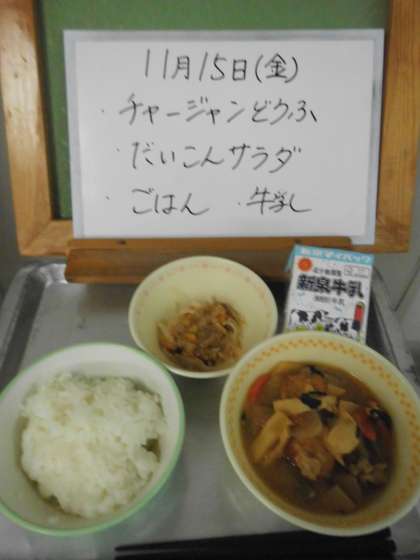 11月15日(金)
・チャージャンどうふ
・だいこんサラダ
・ごはん ・牛乳
新泉牛乳